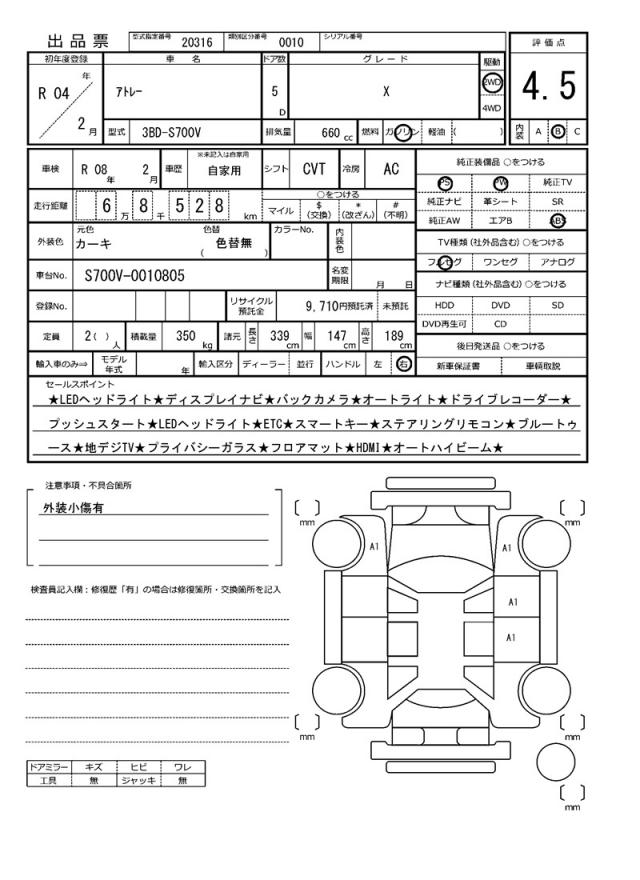 出品票 型式指定番号 20316 類別区分番号 0010 シリアル番号
評価点
初年度登録 車名 ドア数 グレード 駆動
R 04 年 2 月 アトレー 5 D X 2WD 4WD 4.5
型式 3BD-S700V 排気量 660 cc 燃料 ガソリン 軽油 ( ) 内装 A B C
車検 R 08 年 2 月 車歴 ※未記入は自家用 自家用 シフト CVT 冷房 AC
走行距離 6 万 8 千 5 2 8 km ○をつける
マイル $ (交換) * (改ざん) # (不明)
外装色 元色 カーキ 色替 色替無 ( ) カラーNo. 内装色
車台No. S700V-0010805 名変期限 月 日
登録No. リサイクル預託金 9,710円預託済 未預託
定員 2( ) 人 積載量 350 kg 諸元 長さ 339 cm 幅 147 cm 高さ 189 cm
輸入車のみ⇨ モデル年式 年 輸入区分 ディーラー 並行 ハンドル 左 右
純正装備品 ○をつける
PS PW 純正TV
純正ナビ 革シート SR
純正AW エアB ABS
TV種類 (社外品含む) ○をつける
フルセグ ワンセグ アナログ
ナビ種類 (社外品含む) ○をつける
HDD DVD SD
DVD再生可 CD
後日発送品 ○をつける
新車保証書 車輌取説
セールスポイント
★LEDヘッドライト★ディスプレイナビ★バックカメラ★オートライト★ドライブレコーダー★
プッシュスタート★LEDヘッドライト★ETC★スマートキー★ステアリングリモコン★ブルートゥ
ース★地デジTV★プライバシーガラス★フロアマット★HDMI★オートハイビーム★
注意事項・不具合箇所
外装小傷有
検査員記入欄：修復歴「有」の場合は修復箇所・交換箇所を記入
ドアミラー キズ ヒビ ワレ
工具 無 ジャッキ 無
mm mm
A1 A1
A1
A1
mm mm
mm